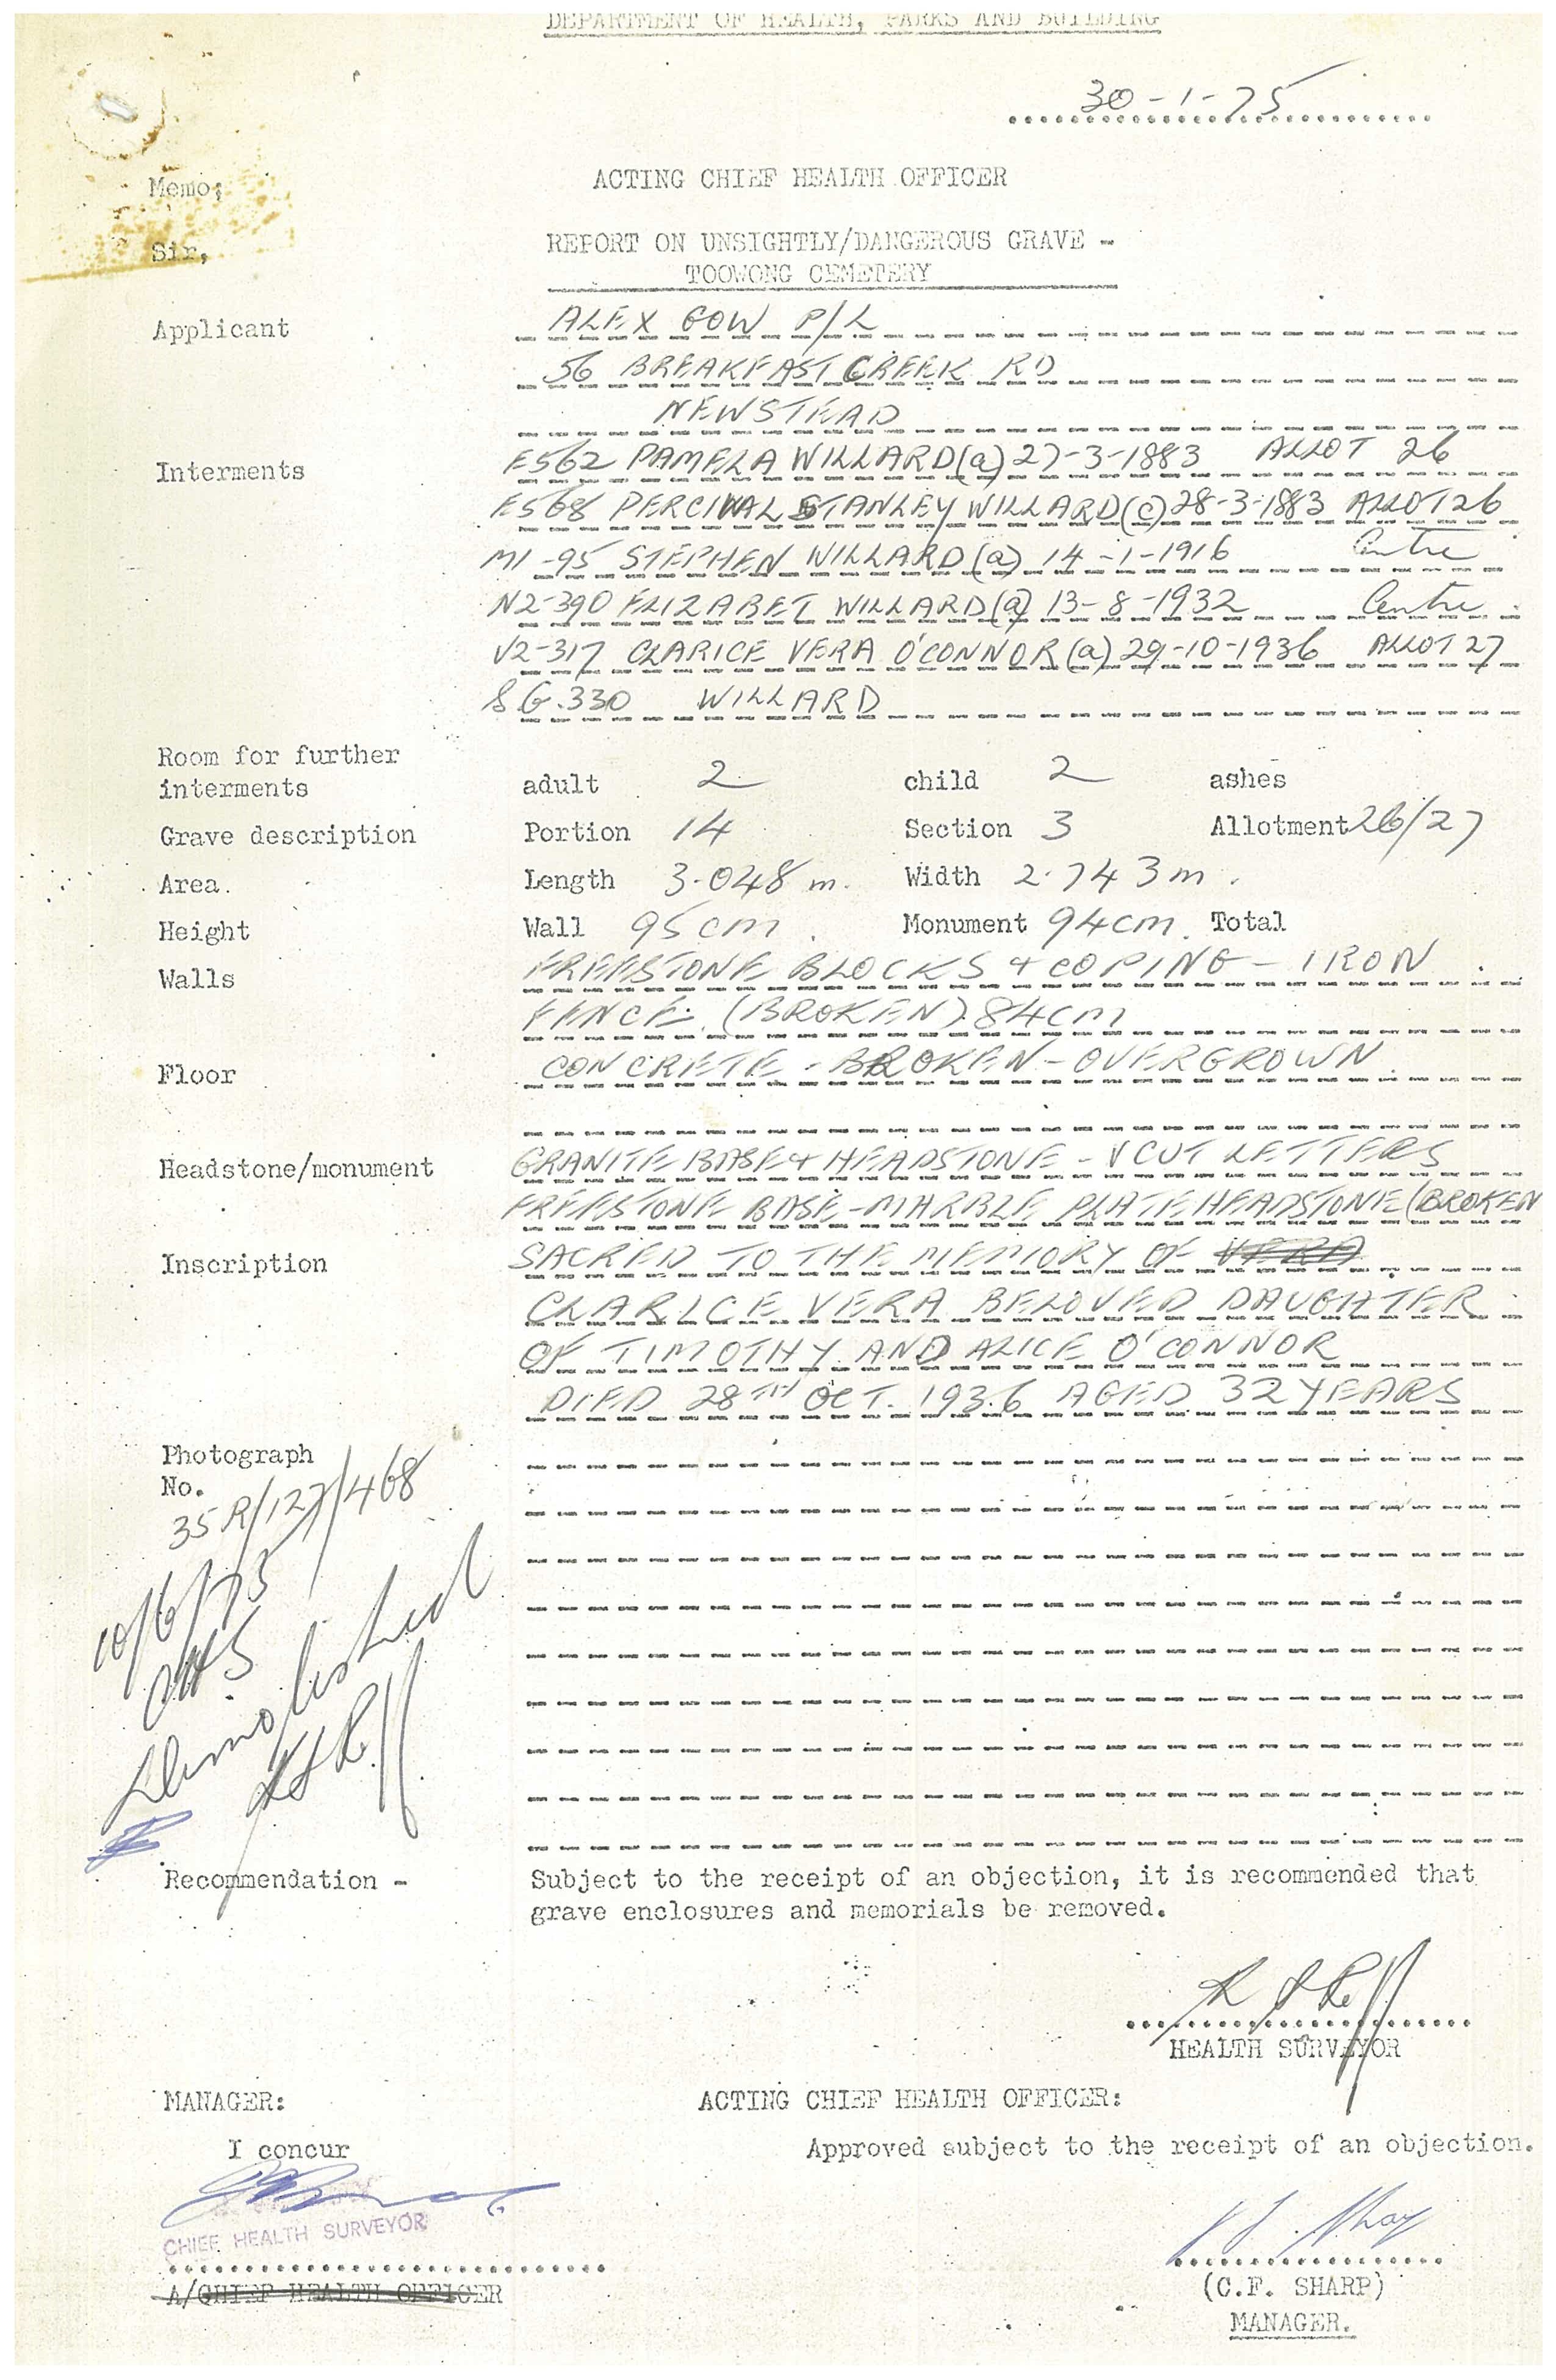 DEPARTMENT OF HEALTH, PARKS AND BUILDING
30-1-75
Memo;
ACTING CHIEF HEALTH OFFICER
Sir,
REPORT ON UNSIGHTLY/DANGEROUS GRAVE -
TOOWONG CEMETERY
Applicant ALEX GOW P/L
56 BREAKFAST CREEK RD
NEWSTEAD
Interments E562 PAMELA WILLARD (a) 27-3-1883 ALLOT 26
E568 PERCIVAL STANLEY WILLARD (c) 28-3-1883 ALLOT 26
M1-95 STEPHEN WILLARD (a) 14-1-1916 Centre
N2-390 ELIZABET WILLARD (a) 13-8-1932 Centre
V2-317 CLARICE VERA O'CONNOR (a) 29-10-1936 ALLOT 27
S.G.330 WILLARD
Room for further
interments adult 2 child 2 ashes
Grave description Portion 14 Section 3 Allotment 26/27
Area. Length 3.048 m. Width 2.743 m.
Height Wall 95 cm. Monument 94 cm. Total
Walls FREESTONE BLOCKS + COPING - IRON
FENCE. (BROKEN) 84cm
Floor CONCRETE - BROKEN - OVERGROWN
Headstone/monument GRANITE BASE + HEADSTONE - V CUT LETTERS
FREESTONE BASE - MARBLE PLATE HEADSTONE (BROKEN
Inscription SACRED TO THE MEMORY OF VERA
CLARICE VERA BELOVED DAUGHTER
OF TIMOTHY AND ALICE O'CONNOR
DIED 28TH OCT. 1936 AGED 32 YEARS
Photograph
No.
35R/127/468
10/6/75
CHS
Demolished
Recommendation - Subject to the receipt of an objection, it is recommended that
grave enclosures and memorials be removed.
HEALTH SURVEYOR
MANAGER: ACTING CHIEF HEALTH OFFICER:
I concur Approved subject to the receipt of an objection.
CHIEF HEALTH SURVEYOR
A/CHIEF HEALTH OFFICER
(C.F. SHARP)
MANAGER.